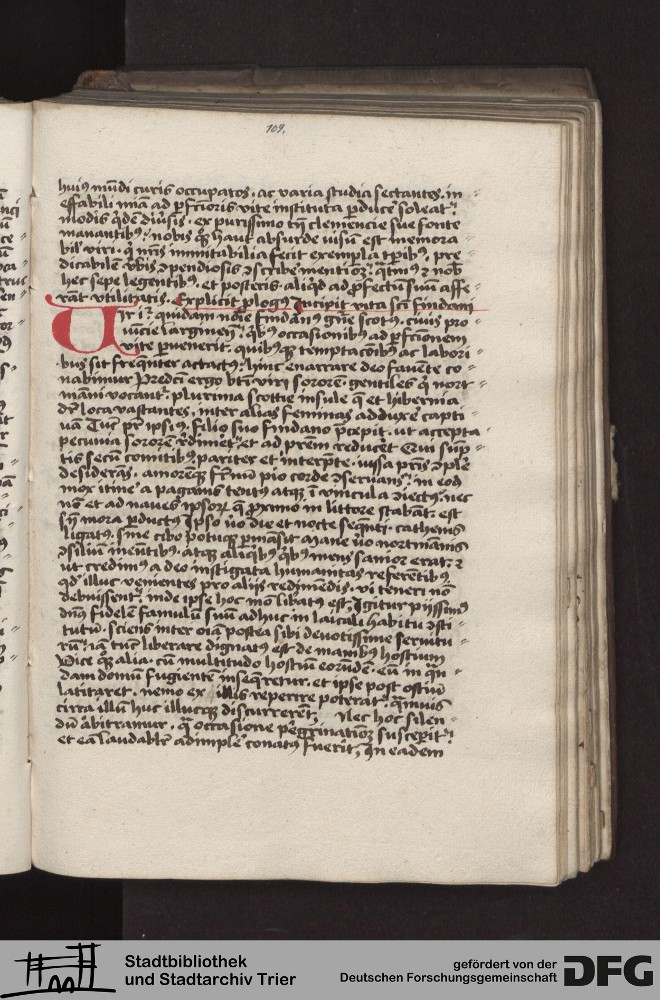 109.
huiꝰ mūdi curis occupatos. ac varia studia sectantes. in
effabili mīa ad ꝑfc̄ioris vite instituta ꝑduce soleat.
modis qͥdem diūsis. ex purissimo tn̄ clemencie sue fonte
manantibꝰ. nobis qͦꝫ haut absurde visū est memora
bil' viri. qͥ nr̄is īmitabilia fecit exempla tꝑibꝰ, pre
dicabilē vbis ꝯpendiosis ꝯscribe
hec sepe legentibꝰ. et posteris. aliqͥd ad ꝓfectū suū affe
rāt vtilitatis. Explicit ꝓlogꝰ Incipit vita scī findani
Vir iͣ quidam noīe findanꝰ gn̄e scotꝰ. ciuis pro
uīcie laginen̄. qͥbꝰ occasionibꝰ ad ꝑfc̄ionem
vite ꝑuenerit. quibꝰqꝫ temptac̄oībꝰ ac labori
bus sit freqn̄ter attactꝰ. hinc enarrare deo fauēte co
nabimur Predc̄i ergo btī viri sororē. gentiles qͥ nort
māni vocant. plurima scottie insule q̄ et hibernia
dr̄ loca vastantes. inter alias feminas adduxe capti
uā Tūc pr̄ ipsiꝰ. filio suo findano p̄cepit. vt accepta
pecunia sororē redimēt. et ad prēm reducet Qui sūp
tis secū comitibꝰ pariter et interp̄te. iussa pr̄is ꝯple
desiderās. amoreqꝫ fr̄nū pio corde ꝯseruans. in eod
mox itine a paganis tentꝰ atqꝫ ī vincula ꝯiectꝰ. nec
nō et ad naues ipsorꝫ q̄ ꝓximo in littore stabāt. est
sn̄ mora ꝑductꝰ Ipso v̄o die et nocte seqn̄ti. cathenis
ligatꝰ. sine cibo potuqꝫ ꝑmāsit Mane v̄o nortmānis
ꝯsiliū ineūtibꝰ. atqꝫ aliqͥbꝰ qͥbꝰ mens sanior erat. ⁊
vt credimꝰ a deo instigata humanitas referētibꝰ
qd' illuc venientes pro alijs redimēdis. vi teneri nō
debuissent. inde ipse hoc mō libatꝰ est. Igitur pijssimꝰ
dnꝰ fidelē famulū suū adhuc in laicali habitu ꝯsti
tutū. sciens inter oīa postea sibi deuotissime seruitu
rū. iā tūc liberare dignatꝰ est de manibꝰ hostium
Vice qͦꝫ alia. cū multitudo hostiū eorūdē. eū in qn̄
dam domū fugientē inseqͥretur. et ipse post ostiū
latitaret. nemo ex illis reperire poterat. qͣmuis
circa illū huc illucqꝫ discurrerēt. Nec hoc silen
dū arbitramur. qͣ occasione peͥgrinationꝫ susceperit.
et eā laudabilr̄ adimple conatꝰ fuerit. In eadem
Stadtbibliothek
und Stadtarchiv Trier
gefördert von der
Deutschen Forschungsgemeinschaft
DFG